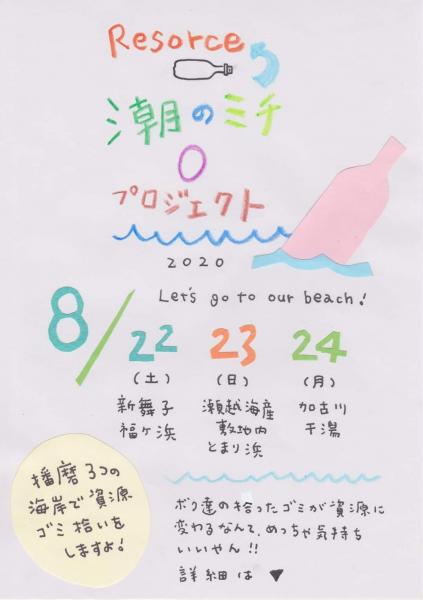 Resorce
潮のミチ
0
プロジェクト
2020
Let's go to our beach!
8/22 23 24
(土) (日) (月)
新舞子 瀬越海産 加古川
福ヶ浜 敷地内 干潟
とまり浜
播磨3つの
海岸で資源
ゴミ拾いを
しますよ!
ボク達の拾ったゴミが資源に
変わるなんて、めっちゃ気持ち
いいやん!!
詳細は ▼